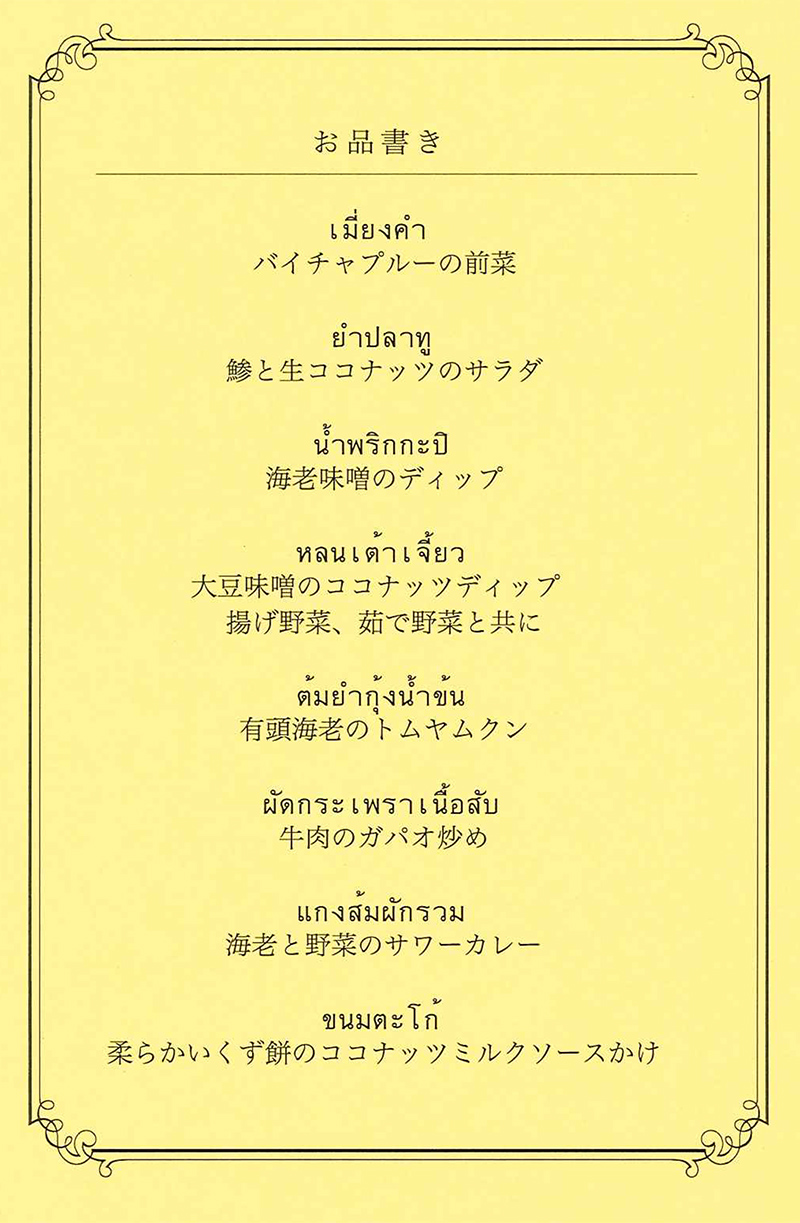 お品書き
เมี่ยงคำ
バイチャプルーの前菜
ยำปลาทู
鯵と生ココナッツのサラダ
น้ำพริกกะปิ
海老味噌のディップ
หลนเต้าเจี้ยว
大豆味噌のココナッツディップ
揚げ野菜、茹で野菜と共に
ต้มยำกุ้งน้ำข้น
有頭海老のトムヤムクン
ผัดกระเพราเนื้อสับ
牛肉のガパオ炒め
แกงส้มผักรวม
海老と野菜のサワーカレー
ขนมตะโก้
柔らかいくず餅のココナッツミルクソースかけ